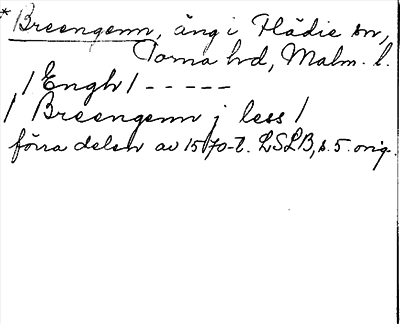 * Breengenn, äng i Flädie sn,
Torna hd, Malm. l.
/ Engh / - - - - -
/ Breengenn j less /
förra delen av 1570-t. LSLB, s. 5. orig.